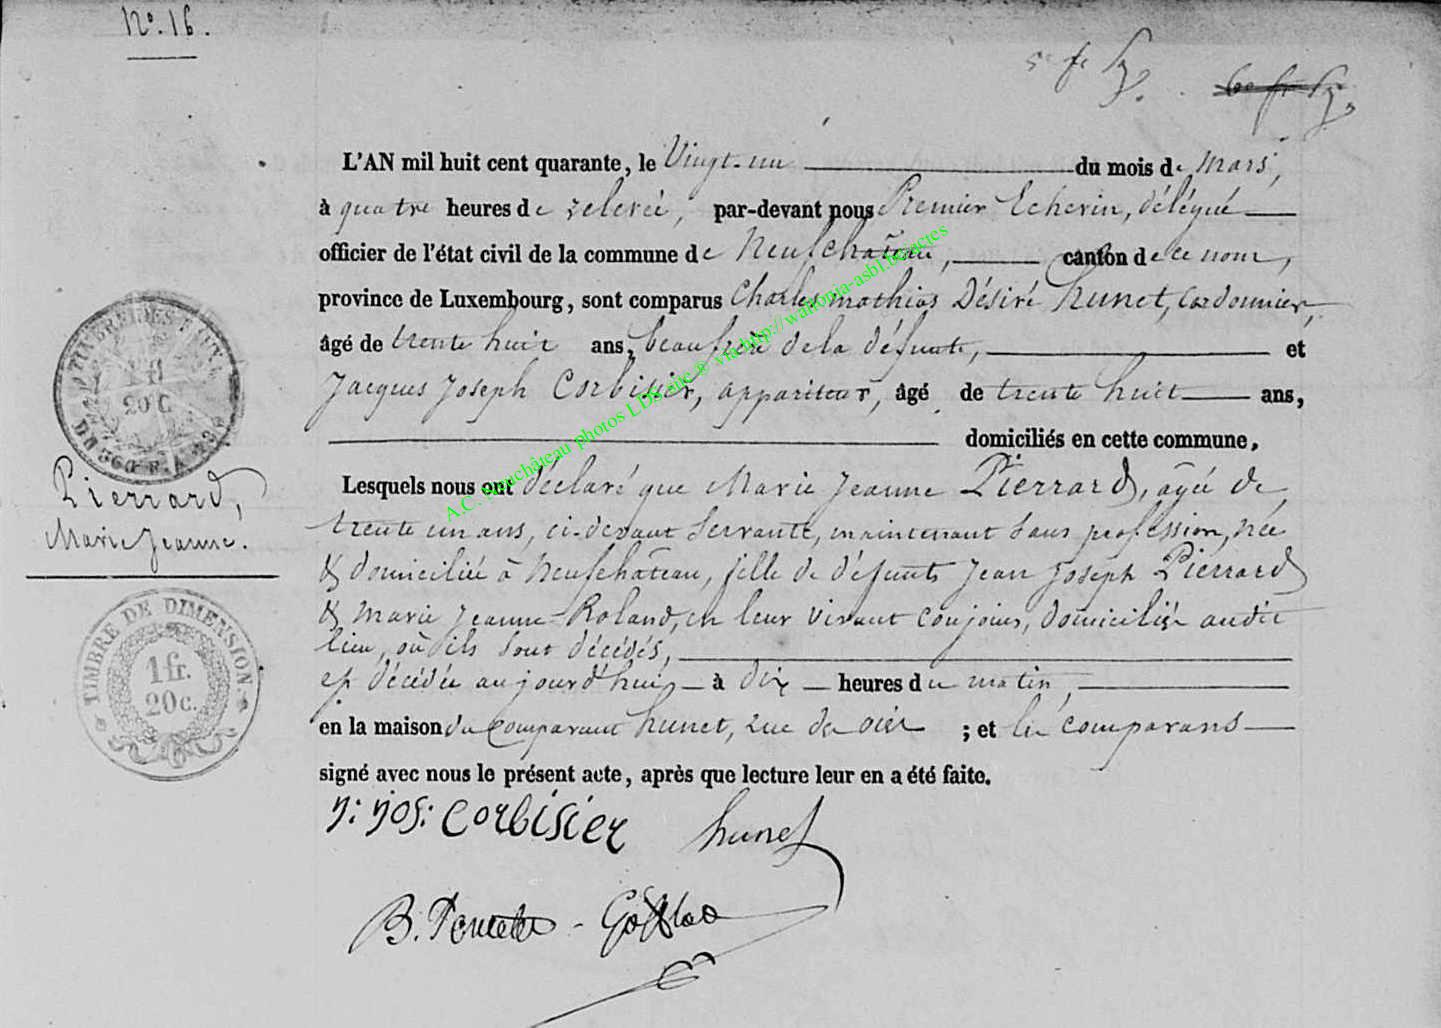 N.° 16.
L'AN mil huit cent quarante, le Vingt-un du mois de Mars,
à quatre heures de relevée, par-devant nous Premier Echevin, délégué
officier de l'état civil de la commune de Neufchateau, canton de ce nom,
province de Luxembourg, sont comparus Charles mathias Désiré hunet, Cordonnier,
âgé de trente huit ans, beaufrère de la défunte, et
Jacques Joseph Corbisier, appariteur, âgé de trente huit ans,
domiciliés en cette commune.
Lesquels nous ont déclaré que Marie Jeanne Pierrard, agée de
trente un ans, ci-devant Servante, maintenant Sans profession, née
& domiciliée à Neufchateau, fille de défunts Jean Joseph Pierrard
& Marie Jeanne Roland, en leur vivant Conjoins, domiciliés audit
lieu, où ils sont décédés,
est décédée aujourd'hui à dix heures du matin,
en la maison du Comparant hunet, rue ; et les comparans
signé avec nous le présent acte, après que lecture leur en a été faite.
Pierrard,
Marie Jeanne.
20 C.
TIMBRE DE DIMENSION
1 fr.
20 c.
J: Jos: Corbisier hunet
B.
A.C. Neufchâteau photos LDS inc.® via http://wallonia-asbl.be/actes